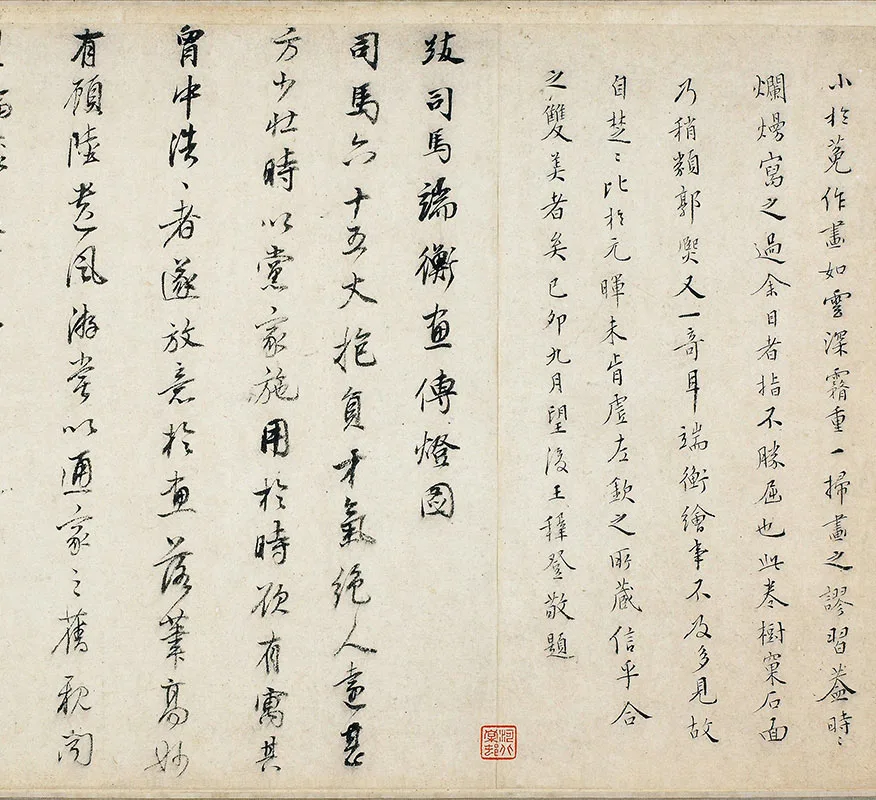 小於菟作畫如雲深霜重一掃畫之謬習蓋時〻
爛熳寫之過余目者指不勝屈也此卷樹窠石面
乃稍類郭熙又一奇耳端衡繪事不及多見故
自楚〻比於元暉未肯虛左欽之所藏信乎合
之雙美者矣己卯九月望後王穉登敬題
跋司馬端衡畫傳燈圖
司馬六十五丈抱負才氣絶人遠甚
方少壯時以黨家施用於時欲有寓其
胷中浩〻者遂放意於畫落筆高妙
有顧陸遺風游嘗以通家之舊親聞